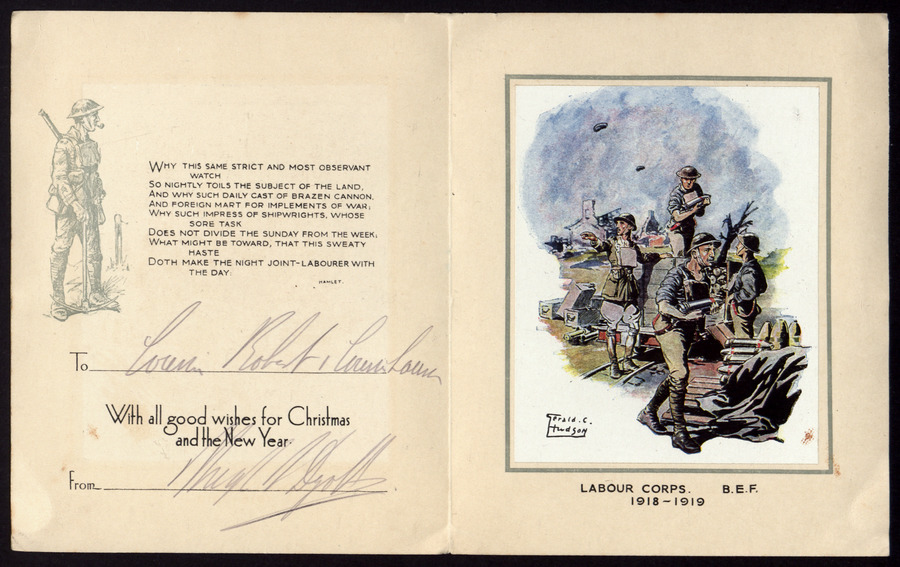 WHY THIS SAME STRICT AND MOST OBSERVANT
WATCH
SO NIGHTLY TOILS THE SUBJECT OF THE LAND,
AND WHY SUCH DAILY CAST OF BRAZEN CANNON,
AND FOREIGN MART FOR IMPLEMENTS OF WAR;
WHY SUCH IMPRESS OF SHIPWRIGHTS, WHOSE
SORE TASK
DOES NOT DIVIDE THE SUNDAY FROM THE WEEK;
WHAT MIGHT BE TOWARD, THAT THIS SWEATY
HASTE
DOTH MAKE THE NIGHT JOINT-LABOURER WITH
THE DAY:
HAMLET.
To Robert
With all good wishes for Christmas
and the New Year
From
Gerald C.
Hudson
LABOUR CORPS. B.E.F.
1918-1919